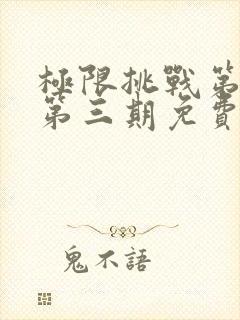 極限挑戰第
第三期免費
鬼不語